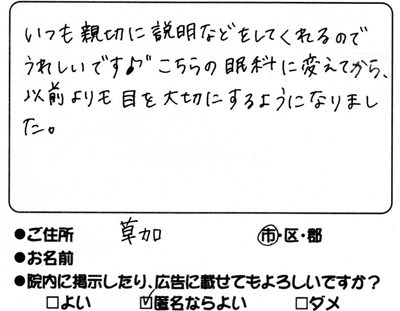 いつも親切に説明などをしてくれるので
うれしいです♪゛こちらの眼科に変えてから、
以前よりも目を大切にするようになりまし
た。
●ご住所 草加 市・区・郡
●お名前
●院内に掲示したり、広告に載せてもよろしいですか?
□よい ☑匿名ならよい □ダメ